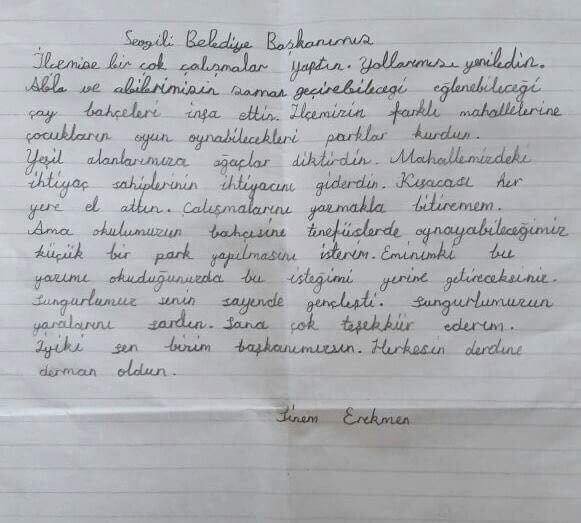 Sevgili Belediye Başkanımız
İlçemize bir çok çalışmalar yaptın. Yollarımızı yeniledin.
Abla ve abilerimizin zaman geçirebileceği eğlenebileceği
çay bahçeleri inşa ettin. İlçemizin farklı mahallelerine
çocukların oyun oynabilecekleri parklar kurdun.
Yeşil alanlarımıza ağaçlar diktirdin. Mahallemizdeki
ihtiyaç sahiplerinin ihtiyacını giderdin. Kısacası her
yere el attın. Çalışmalarını yazmakla bitiremem.
Ama okulumuzun bahçesine teneffüslerde oynayabileceğimiz
küçük bir park yapılmasını isterim. Eminimki bu
yazımı okuduğunuzda bu isteğimi yerine getireceksiniz.
Sungurlumuz senin sayende gençleşti. Sungurlumuzun
yaralarını sardın. Sana çok teşekkür ederim.
İyiki sen bizim başkanımızsın. Herkesin derdine
derman oldun.
Sinem Erekmen